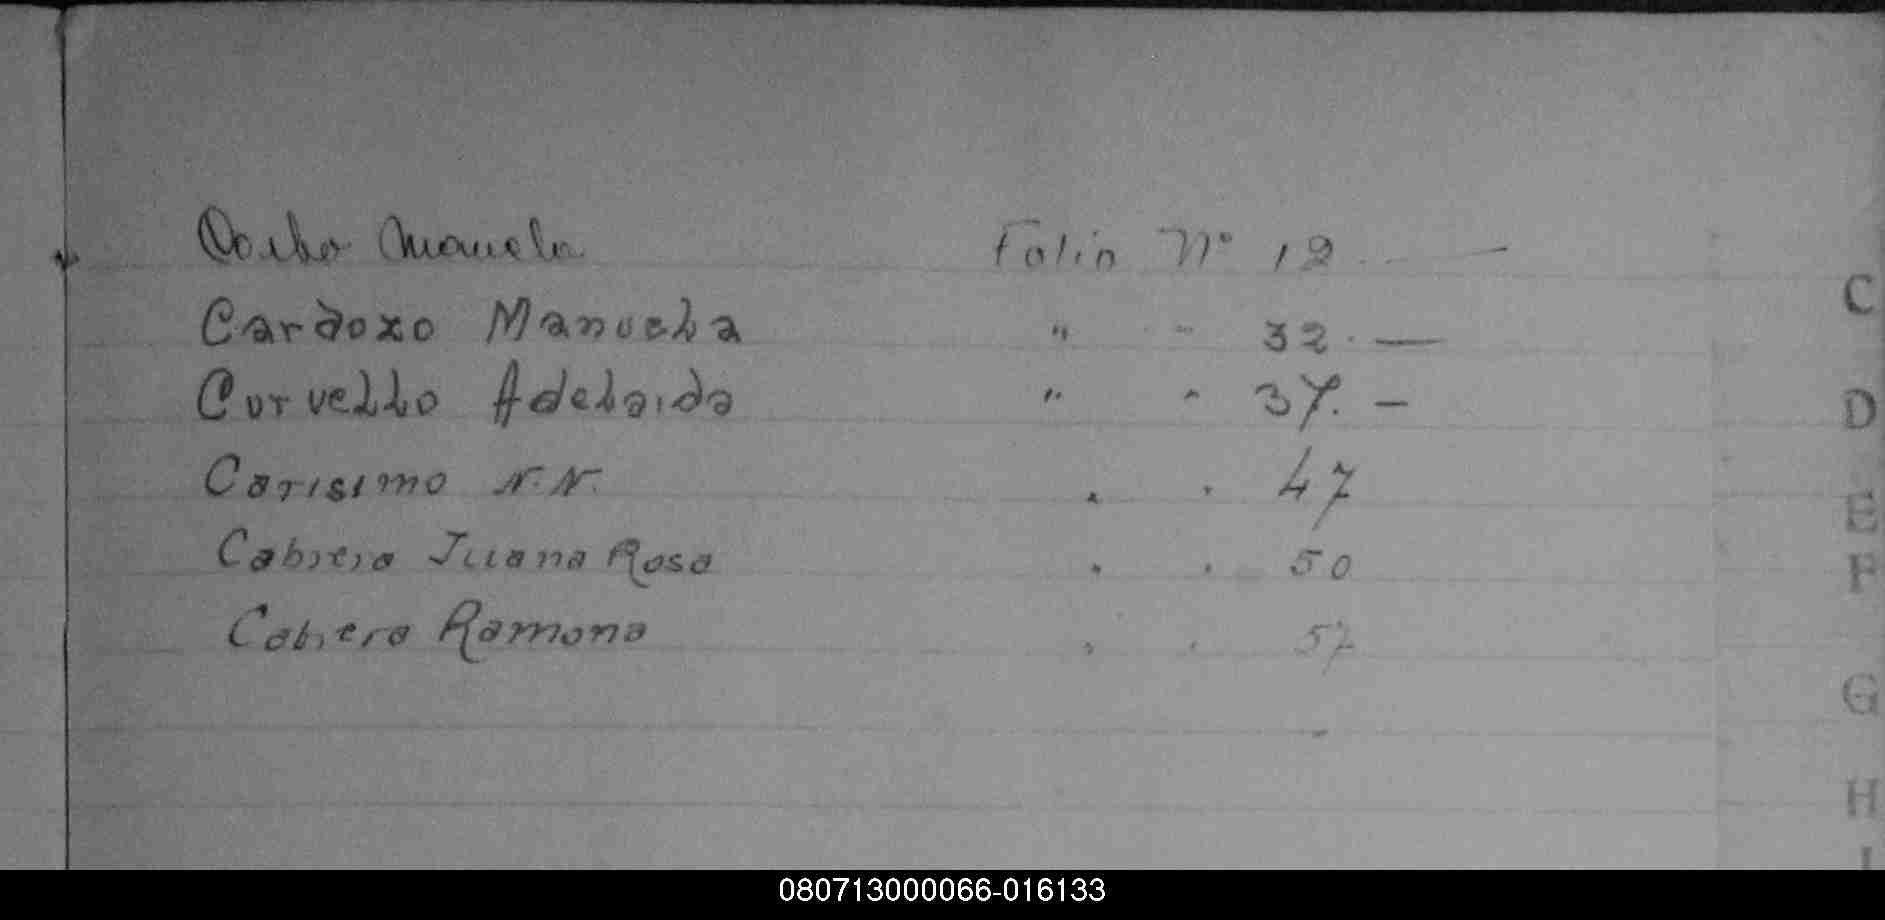 Manuela Folio Nº 12 —
Cardozo Manuela " " 32. —
Corvello Adelaida " " 37. —
Carisimo N.N. . . 47
Cabrera Juana Rosa . . 50
Cabrera Ramona . . 57
C
D
E
F
G
H
I
080713000066-016133